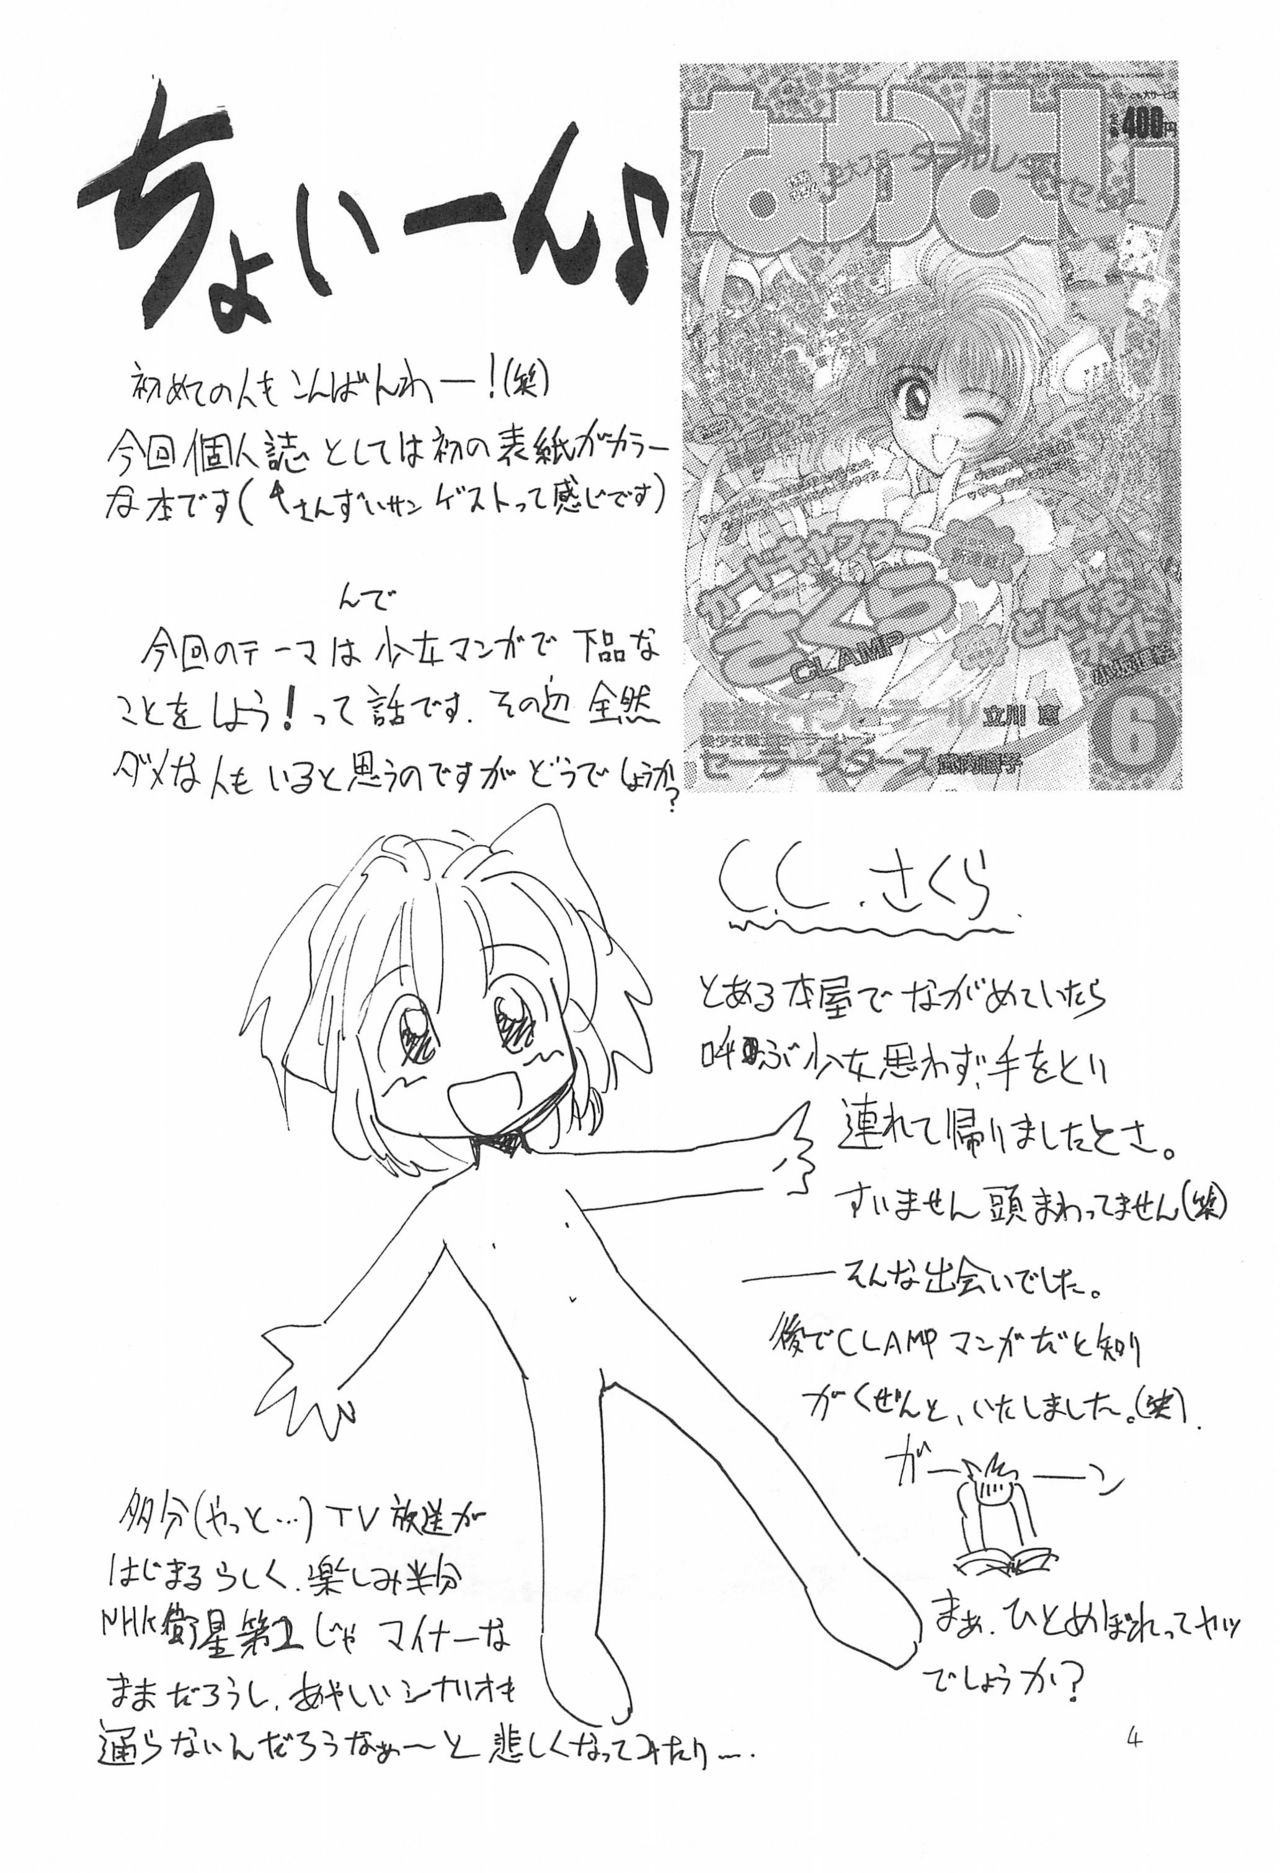 ちょいーん♪
初めての人もこんばんわー!(笑)
今回個人誌としては初の表紙がカラー
な本です(さんずいサン ゲストって感じです)
んで
今回のテーマは少女マンガで下品な
ことをしよう!って話です.その辺全然
ダメな人もいると思うのですがどうでしょうか?
なかよし
400円
カードキャプター
さくら
CLAMP
とんでも
ナイト
立川 恵
セーラースターズ 武内直子
6
C.C.さくら.
とある本屋でながめていたら
呼ぶ少女思わず、手をとり
連れて帰りましたとさ。
すいません頭まわってません(笑)
──そんな出会いでした。
後でCLAMPマンガだと知り
がくぜんと、いたしました。(笑).
ガーーン
まぁ.ひとめぼれってヤツ
でしょうか?
多分(やっと…)TV放送が
はじまるらしく.楽しみ半分
NHK衛星第2じゃマイナーな
ままだろうし.あやしいシナリオも
通らないんだろうなぁ〜と悲しくなってみたり….
4